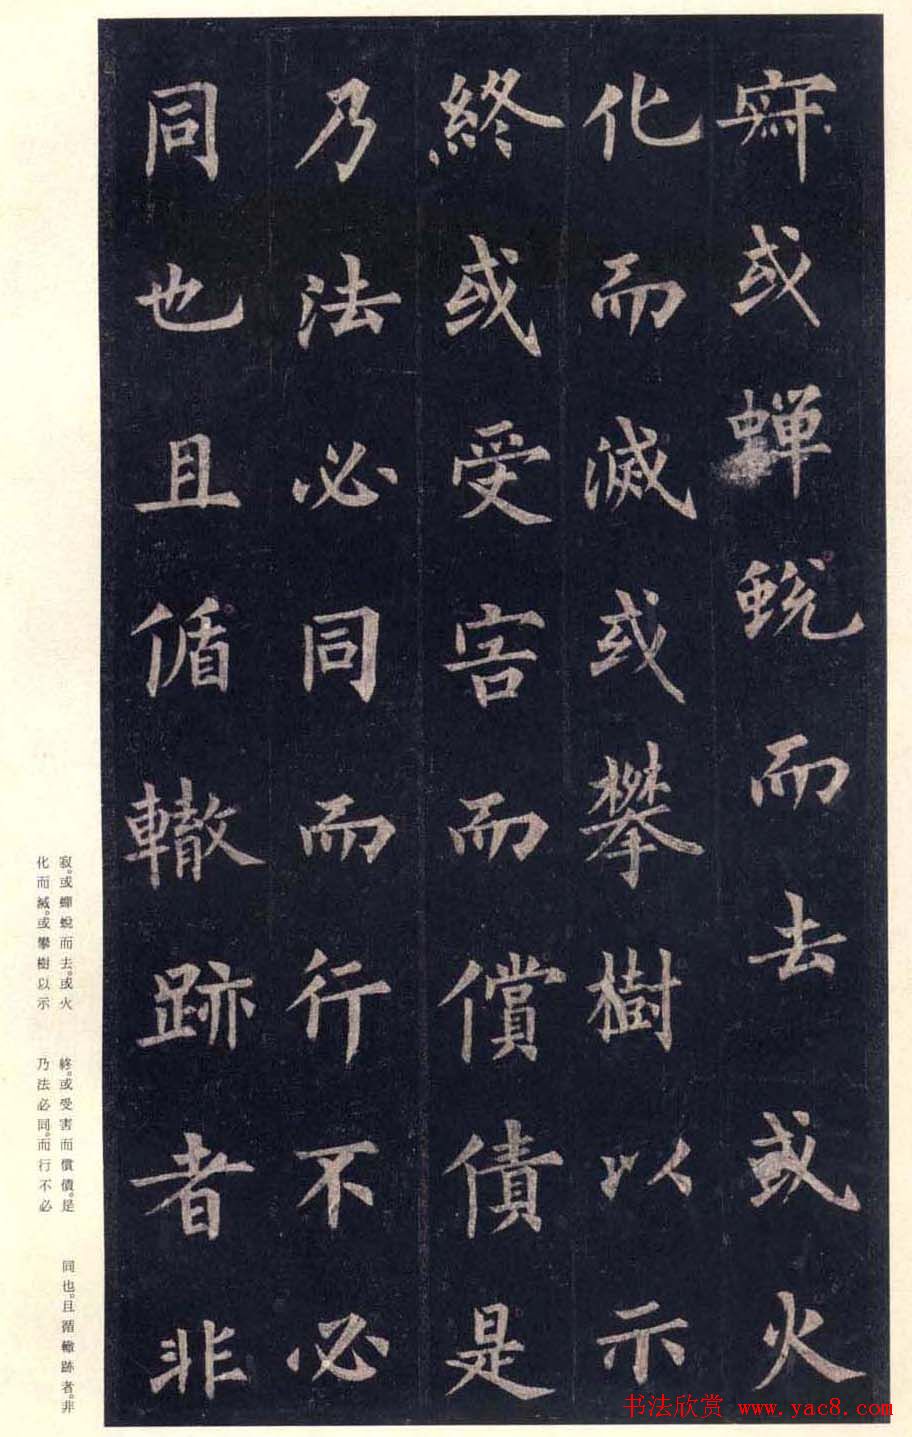 寂或蟬蛻而去或火
化而滅或攀樹以示
終或受害而償債是
乃法必同而行不必
同也且循轍跡者非
寂。或蟬蛻而去。或火
化而滅。或攀樹以示
終。或受害而償債。是
乃法必同。而行不必
同也。且循轍跡者。非
书法欣赏 www.yac8.com